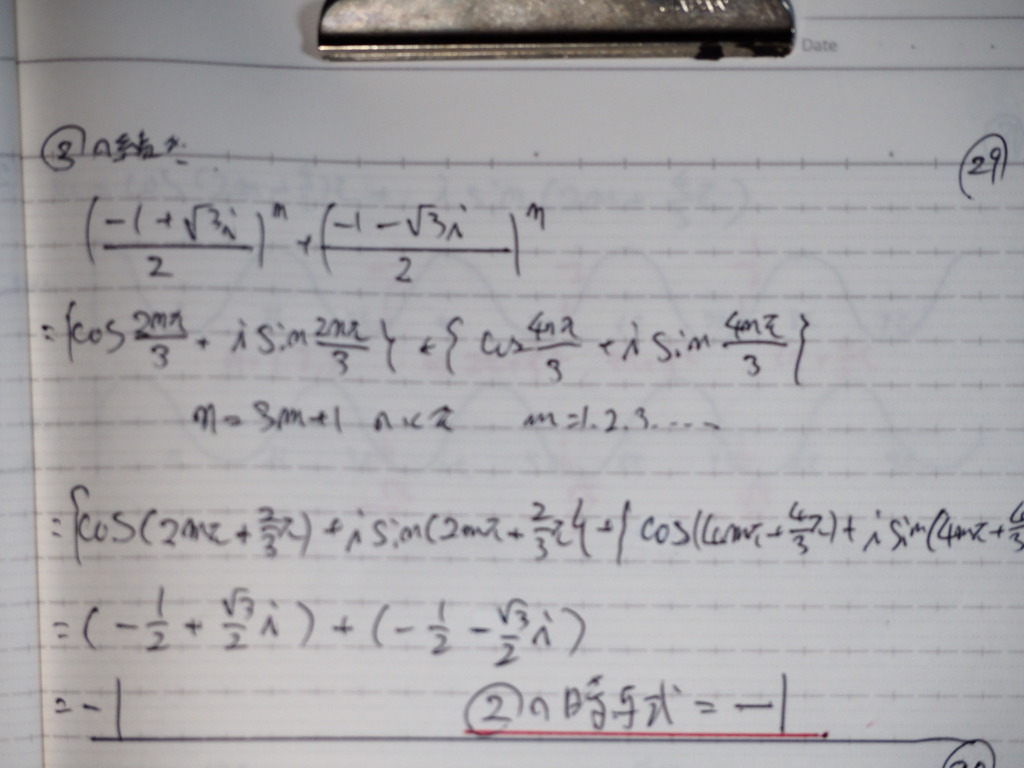 Date
(29)
③の
(-1+√3i/2)^n + (-1-√3i/2)^n
={cos 2nπ/3 + i sin 2nπ/3} + {cos 4nπ/3 + i sin 4nπ/3}
n=3m+1 のとき m=1.2.3.....
={cos(2mπ+2/3π)+i sin(2mπ+2/3π} + {cos(4mπ+4/3π)+i sin(4mπ+4/3
=(-1/2+√3/2 i)+(-1/2-√3/2 i)
=-1 ②の時与式=-1